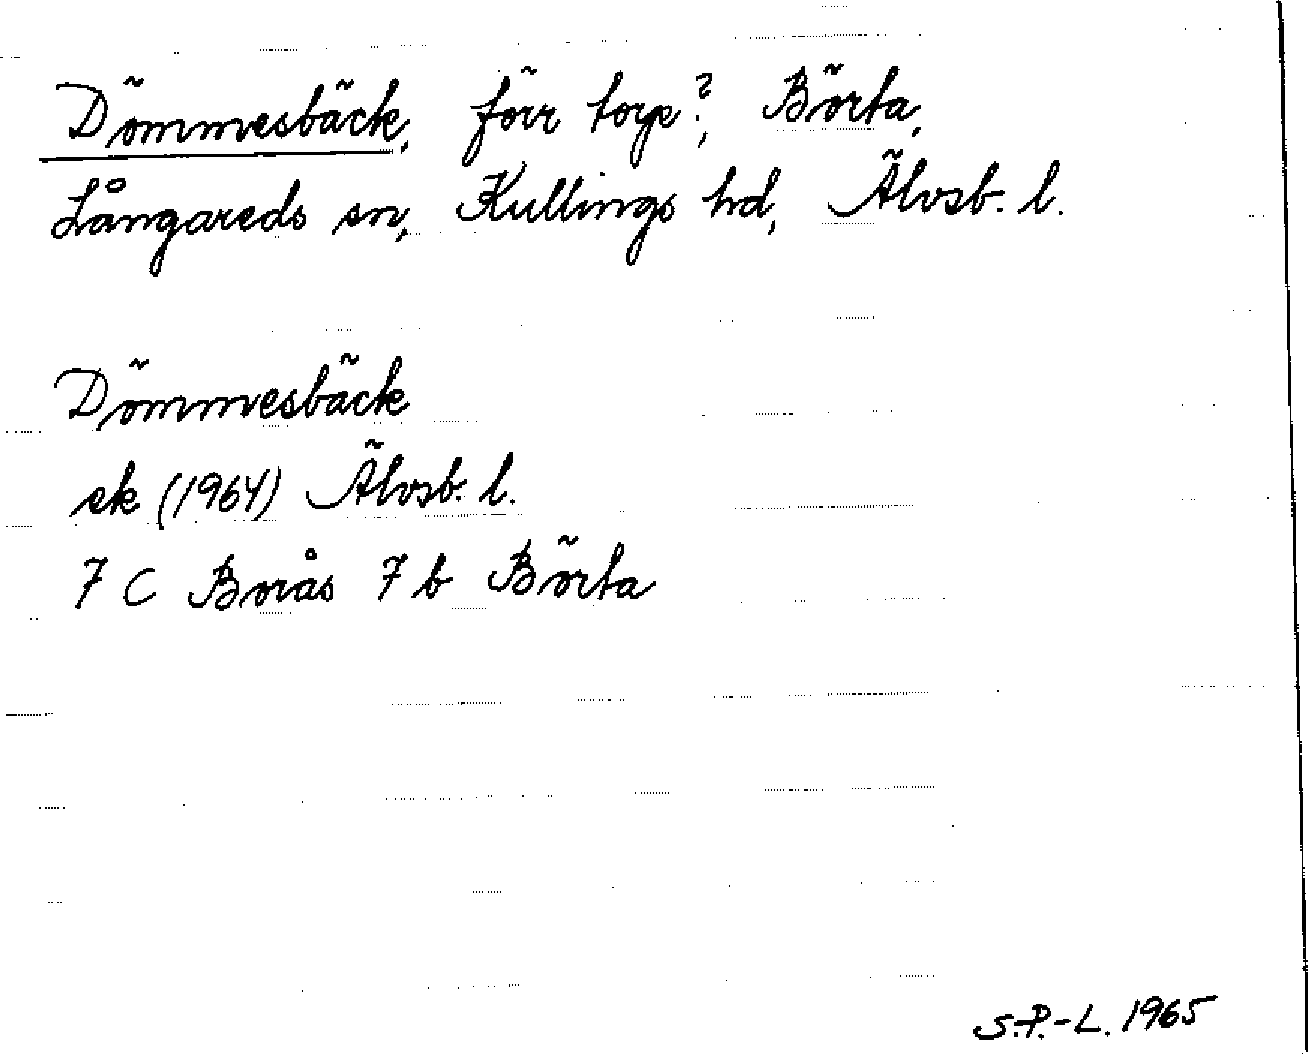 Dömmesbäck, förr torp?, Börta,
Långareds sn, Kullings hd, Älvsb. l.
Dömmesbäck
ek (1964) Älvsb. l.
7 C Borås 7 b Börta
S.P.-L. 1965